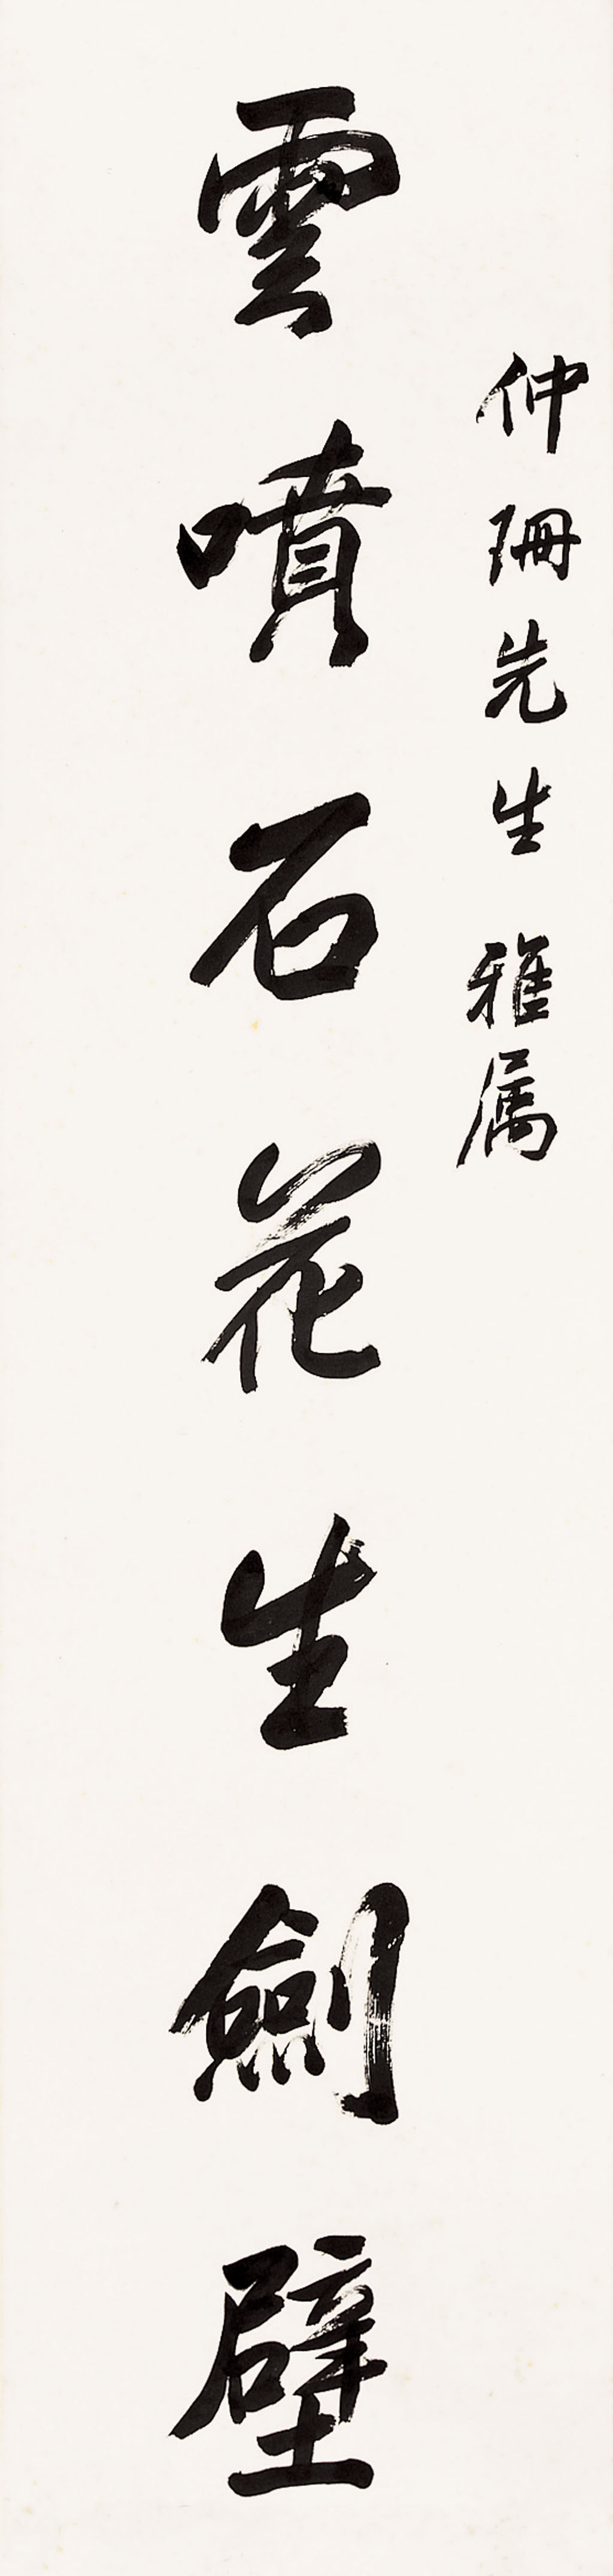 仲珊先生雅属
雲噴石花生劍壁